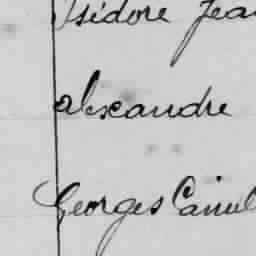 Isidore Jean
alexandre
Georges Camil